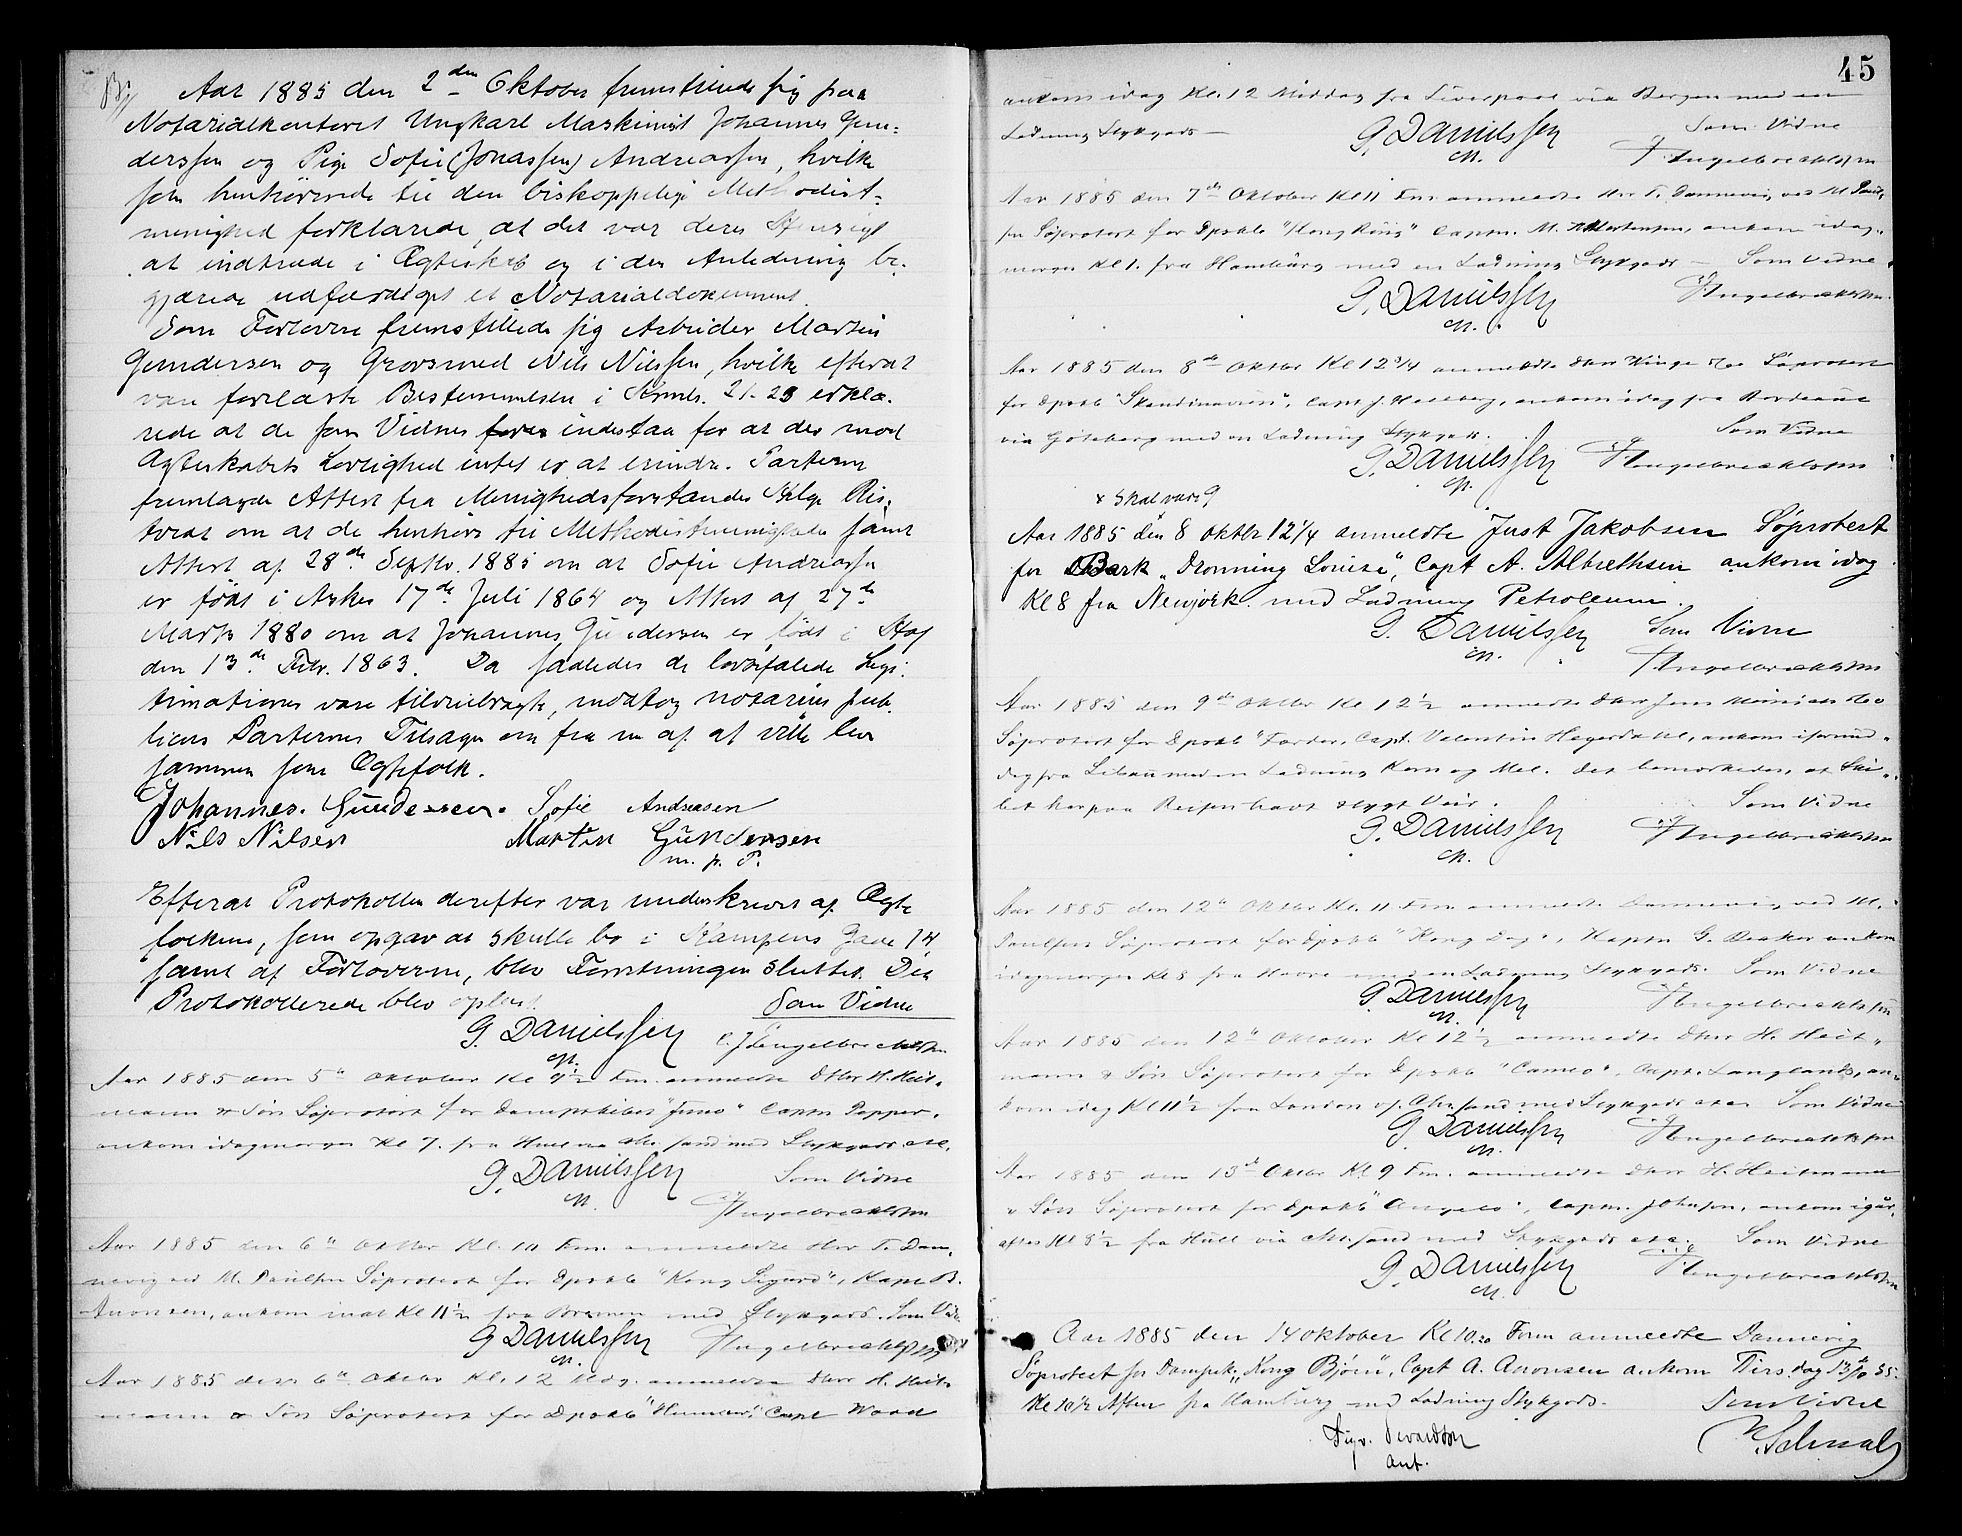 Aar 1885 den 2den Oktober fremstillede sig paa
Notarialkontoret Ungkarl Maskinist Johannes Gun-
derssen og Pige Sofie (Jonassen) Andreassen, hvilke
som henhørende til den biskoppelige Methodist-
menighed forklarede, at det var deres Hensigt
at indtræde i Ægteskab og i den Anledning be-
gjærede udfærdiget et Notarialdokument.
Som Forlovere fremstillede sig Arbeider Martin
Gundersen og Grovsmed Nils Nilssen, hvilke efterat
være forelæste Bestemmelsen i 21-23 erklæ-
rede at de som Vidner indestaa for at der mod
Ægteskabets Lovlighed intet er at erindre. Parterne
fremlagde Attest fra Menighedsforstander
om at de henhøre til Methodistmenigheden samt
Attest af 28de Septbr. 1885 om at Sofie Andreassen
er født i Aker 17de Juli 1864 og Attest af 27de
Marts 1880 om at Johannes Gundersen er født i
den 13de Febr. 1863. Da saaledes de lovbefalede Legi-
timationer vare tilveiebragte, modtog notarius pub-
licus Parternes Tilsagn om fra nu af at ville leve
sammen som Ægtefolk.
Johannes. Gundersen. Sofie Andreasen
Nils Nilsen Martin Gundersen
m. p. P.
Efterat Protokollen derefter var underskrevet af Ægte
folkene, som opgav at skulle bo i Kampens Gade 14
samt af Forloverne, blev Forretningen sluttet. Det
Protokollerede blev oplæst.
Som Vidne
G. Danielssen Engelbrechtsen
Aar 1885 den 5te Oktober Kl 9½ Fm. anmeldte Dhrr H. Heit-
mann & Søn Søprotest for Dampskibet "Juno" Captn Pepper,
ankom idagmorges Kl 7. fra Hull via Chr.sand med Stykgods etc.
G. Danielssen Som Vidne
Engelbrechtsen
Aar 1885 den 6te Oktbr Kl. 10 Fm. anmeldte Hrr T. Dan-
nevig ved M. Paulsen Søprotest for Dpskb "Kong Sigurd", Kapt B.
Aronsen, ankom inat Kl 11½ fra Bremen med Stykgods. Som Vidne
G Danielssen Engelbrechtsen
Aar 1885 den 6te Oktbr Kl. 12 Mdg. anmeldte Dhrr H. Heit-
mann & Søn Søprotest for Dpskb Capt Wood
45
ankom idag Kl. 12 Middag fra Liverpool via Bergen med en
Ladning Stykgods —
G. Danielssen Som Vidne
Engelbrechtsen
Aar 1885 den 7de Oktober Kl 11 Fm. anmeldte Hrr T. Dannevig ved M Paul-
sen Søprotest for Dpskb "Kong Ring" Captn. M. Mortensen, ankom idag-
morges Kl 1. fra Hamburg med en Ladning Stykgods — Som Vidne
G. Danielssen Engelbrechtsen
Aar 1885 den 8de Oktbr Kl 12¾ anmeldte Dhrr Kinge & Co Søprotest
for Dpskb "Skandinavien", Capt J. Hedberg, ankom idag fra Bordeaux
via Göteborg med en Ladning Stykgods.
Som Vidne
G. Danielssen Engelbrechtsen
x skal være 9
Aar 1885 den 8 Oktbr 12¼ anmeldte Just Jakobsen Søprotest
for Bark "Dronning Louise", Capt A. Albrethsen ankom idag
Kl 8 fra Newjork med Ladning Petroleum.
G. Danielssen Som Vidne
Engelbrechtsen
Aar 1885 den 9de Oktbr Kl 12½ anmeldte Dhrr Jens Meinich & Co
Søprotest for Dpskb "Farder, Capt. Valentin Hegerdahl, ankom iformid-
dag fra Libau med en Ladning Korn og Mel. Det bemærkedes, at Ski-
bet har paa Reisen havt stygt Veir.
Som Vidne
G. Danielssen Engelbrechtsen
Aar 1885 den 12te Oktbr Kl. 11 Fm. anmeldte Dannevig ved M.
Paulsen Søprotest for Dpskb "Kong Dag", Kaptn G. ankom
idagmorges Kl 8 fra Havre med en Ladning Stykgods. Som Vidne
G. Danielssen Engelbrechtsen
Aar 1885 den 12te Oktober Kl 12½ anmeldte Dhrr H. Heit-
mann & Søn Søprotest for Dpskb "Cameo", Capt. Langlands, an-
kom idag Kl 11½ fra London og Chr.sand med Stykgods etc Som Vidne
G Danielssen Engelbrechtsen
Aar 1885 den 13de Oktbr Kl. 9 Fm. anmeldte Dhrr H. Heitmann
& Søn Søprotest for Dpskb "Angelo", Captn. Johnson, ankom igår
aftes Kl 8½ fra Hull via Chr.sand med Stykgods etc. Som Vidne
G. Danielssen Engelbrechtsen
Aar 1885 den 14 Oktober Kl 10.20 Form anmeldte Dannevig
Søprotest for Dampsk. "Kong Björn", Capt A. Aronsen ankom Tirsdag 13/10 85.
Kl 10½ Aften fra Hamburg med Ladning Stykgods.
Som Vidne
Sigv.
ant.